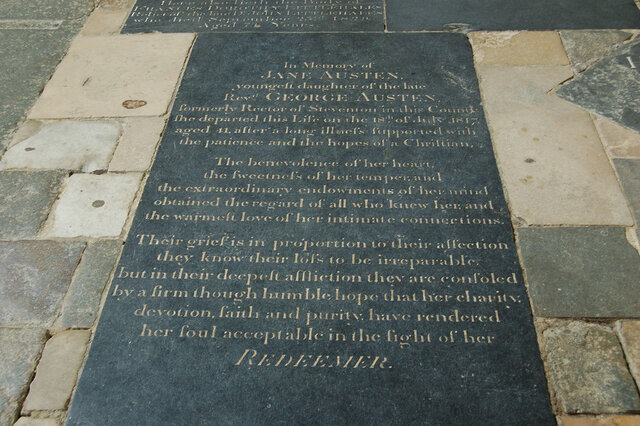 who died September
Aged 74 Years
In Memory of
JANE AUSTEN,
youngeſt daughter of the late
Revd. GEORGE AUSTEN,
formerly Rector of Steventon in this County
ſhe departed this Life on the 18th of July 1817,
aged 41, after a long illneſs ſupported with
the patience and the hopes of a Chriſtian.
The benevolence of her heart,
the ſweetneſs of her temper, and
the extraordinary endowments of her mind
obtained the regard of all who knew her, and
the warmeſt love of her intimate connections.
Their grief is in proportion to their affection
they know their loſs to be irreparable,
but in their deepeſt affliction they are conſoled
by a firm though humble hope that her charity,
devotion, faith and purity, have rendered
her ſoul acceptable in the ſight of her
REDEEMER.